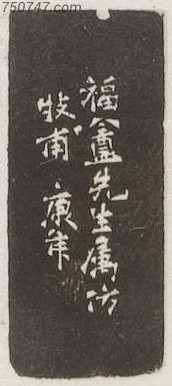 750747.com
福盦先生属仿
牧甫 康年